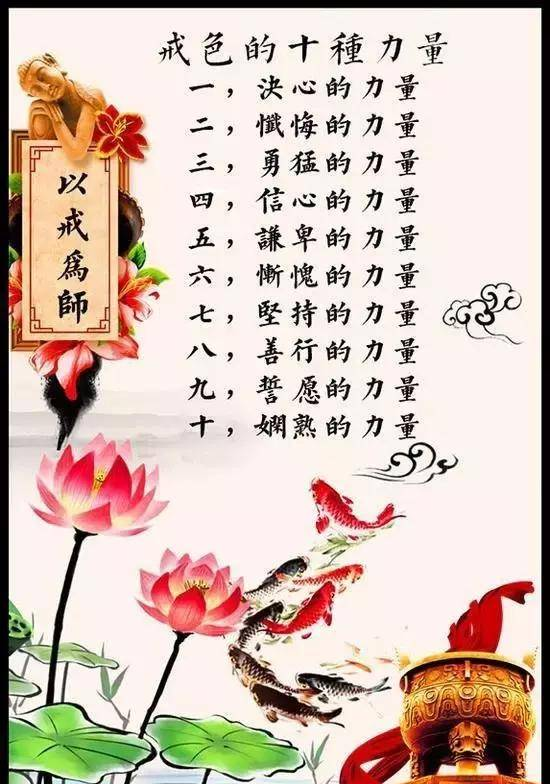 戒色的十種力量
一，決心的力量
二，懺悔的力量
三，勇猛的力量
四，信心的力量
五，謙卑的力量
六，慚愧的力量
七，堅持的力量
八，善行的力量
九，誓愿的力量
十，嫻熟的力量
以戒爲師